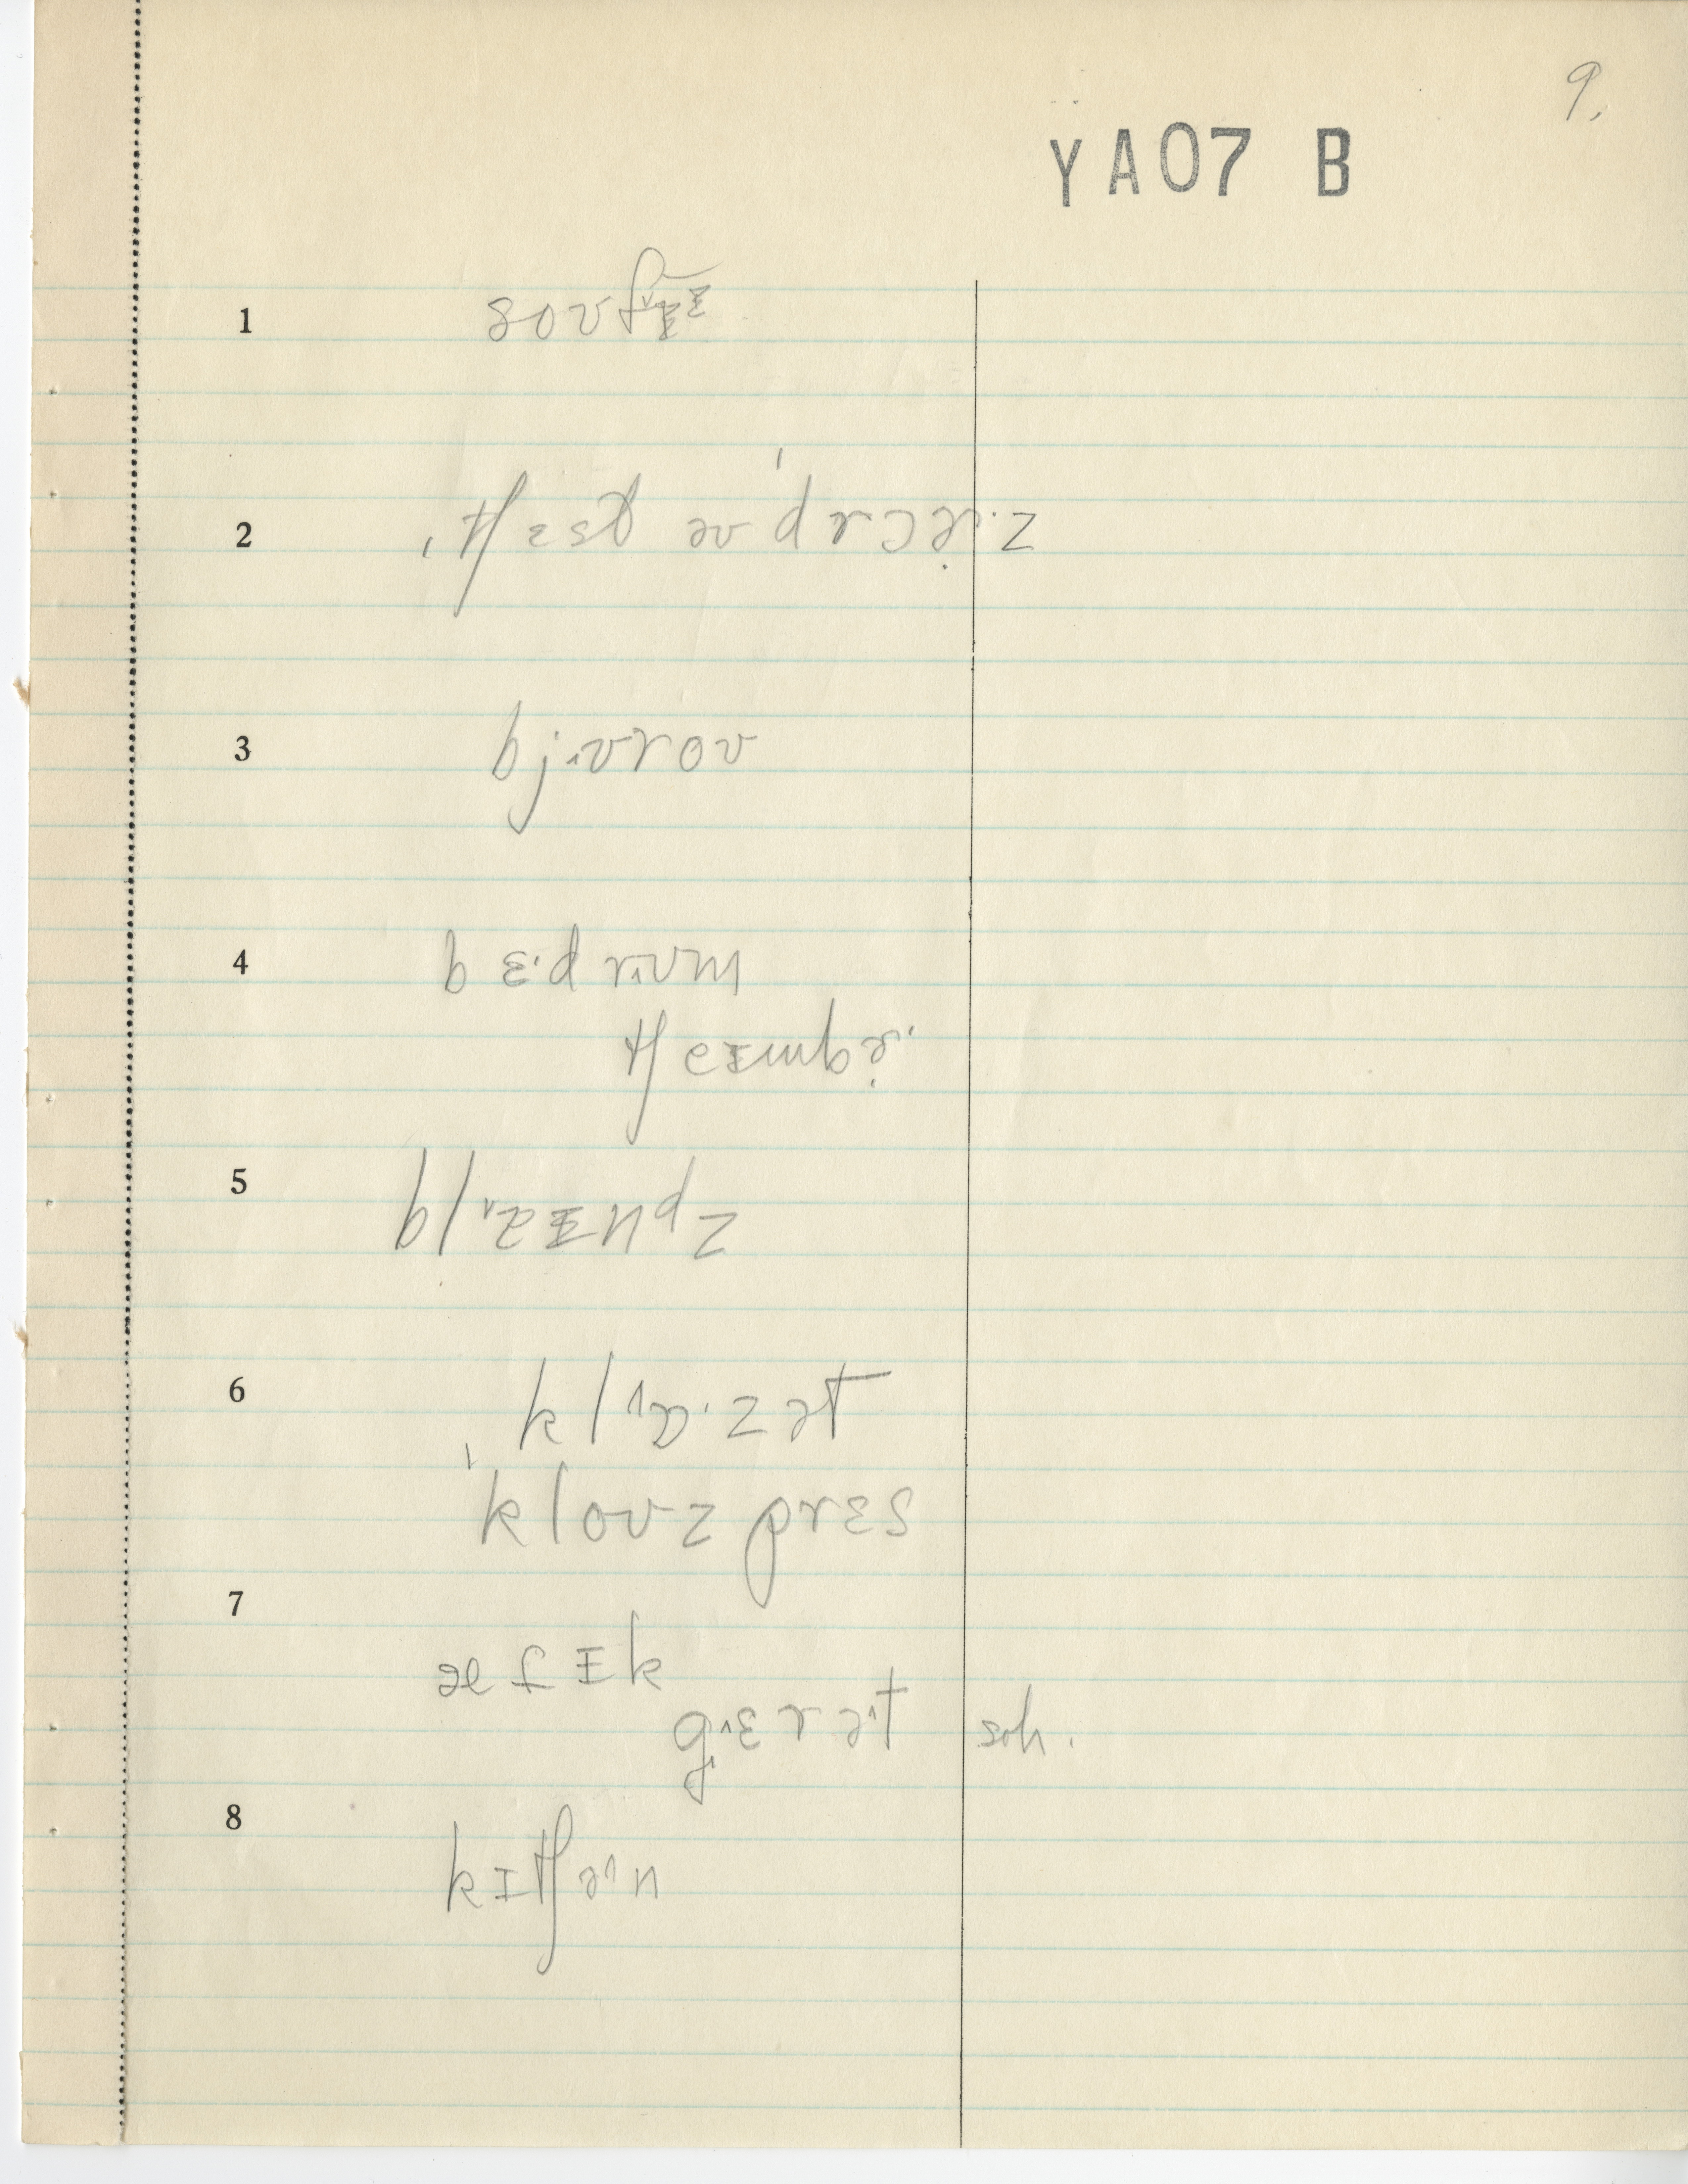 9.
YA07 B
1 soʊfɚ
2 ˌtʃɛst əv ˈdrɔɚ·z
3 bjˑʊroʊ
4 bɛ·drʊm
tʃeɪmbɚ·
5 blaɪndz
6 klɒ·zət
ˌkloʊzprɛs
7 æfɪk
gɛrət soh.
8 kɪtʃən